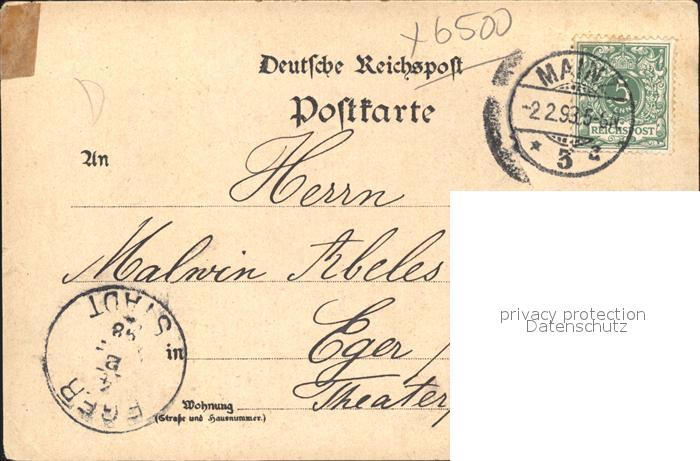 +6500
Deutsche Reichspost
Postkarte
MAINZ
-2 2.93.5-6N.
* 5 a
5
REICHSPOST
An
Herrn
Malwin Abeles
in Eger /
Theater
Wohnung
(Straße und Hausnummer.)
EGER STADT
privacy protection
Datenschutz